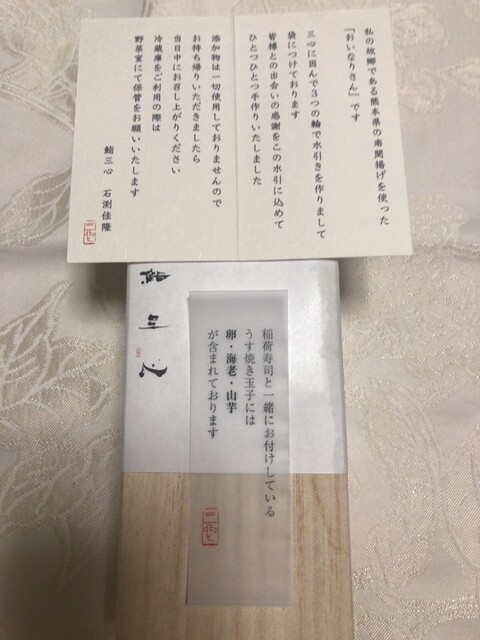 私の故郷である熊本県の南関揚げを使った
『おいなりさん』です
三心に因んで3つの輪で水引きを作りまして
袋につけております
皆様との出会いの感謝をこの水引に込めて
ひとつひとつ手作りいたしました
添加物は一切使用しておりませんので
お持ち帰りいただきましたら
当日中にお召し上がりください
冷蔵庫をご利用の際は
野菜室にて保管をお願いいたします
鮨三心 石渕佳隆
鮨三心
稲荷寿司と一緒にお付けしている
うす焼き玉子には
卵・海老・山芋
が含まれております